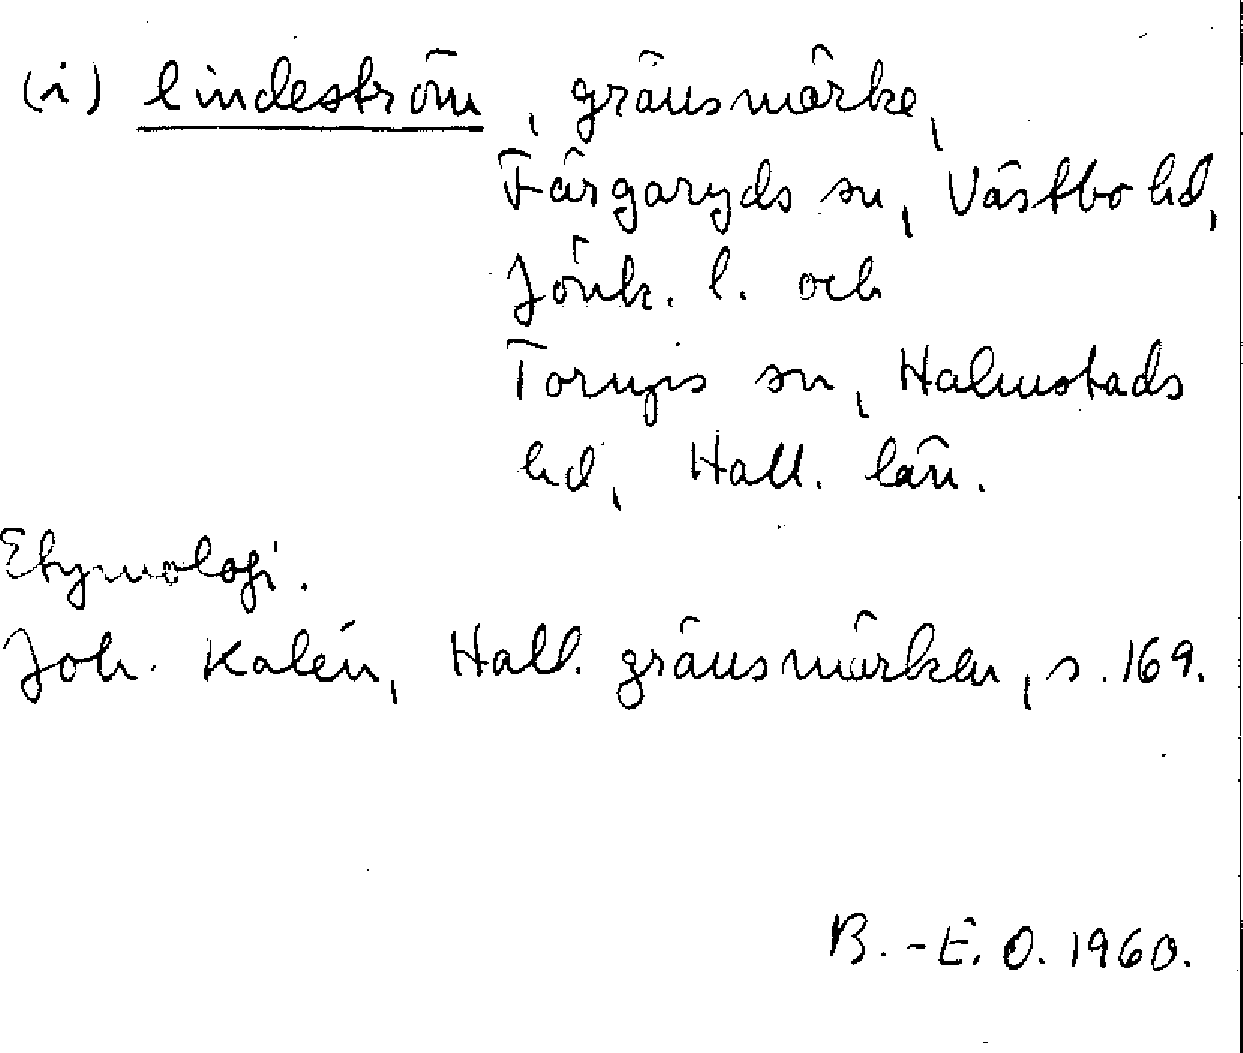 (i) lindeström, gränsmärke,
Färgaryds sn, Västbo hd,
Jönk. l. och
Torups sn, Halmstads
hd, Hall. län.
Etymologi.
Joh. Kalén, Hall. gränsmärken, s. 169.
B.-E. O. 1960.